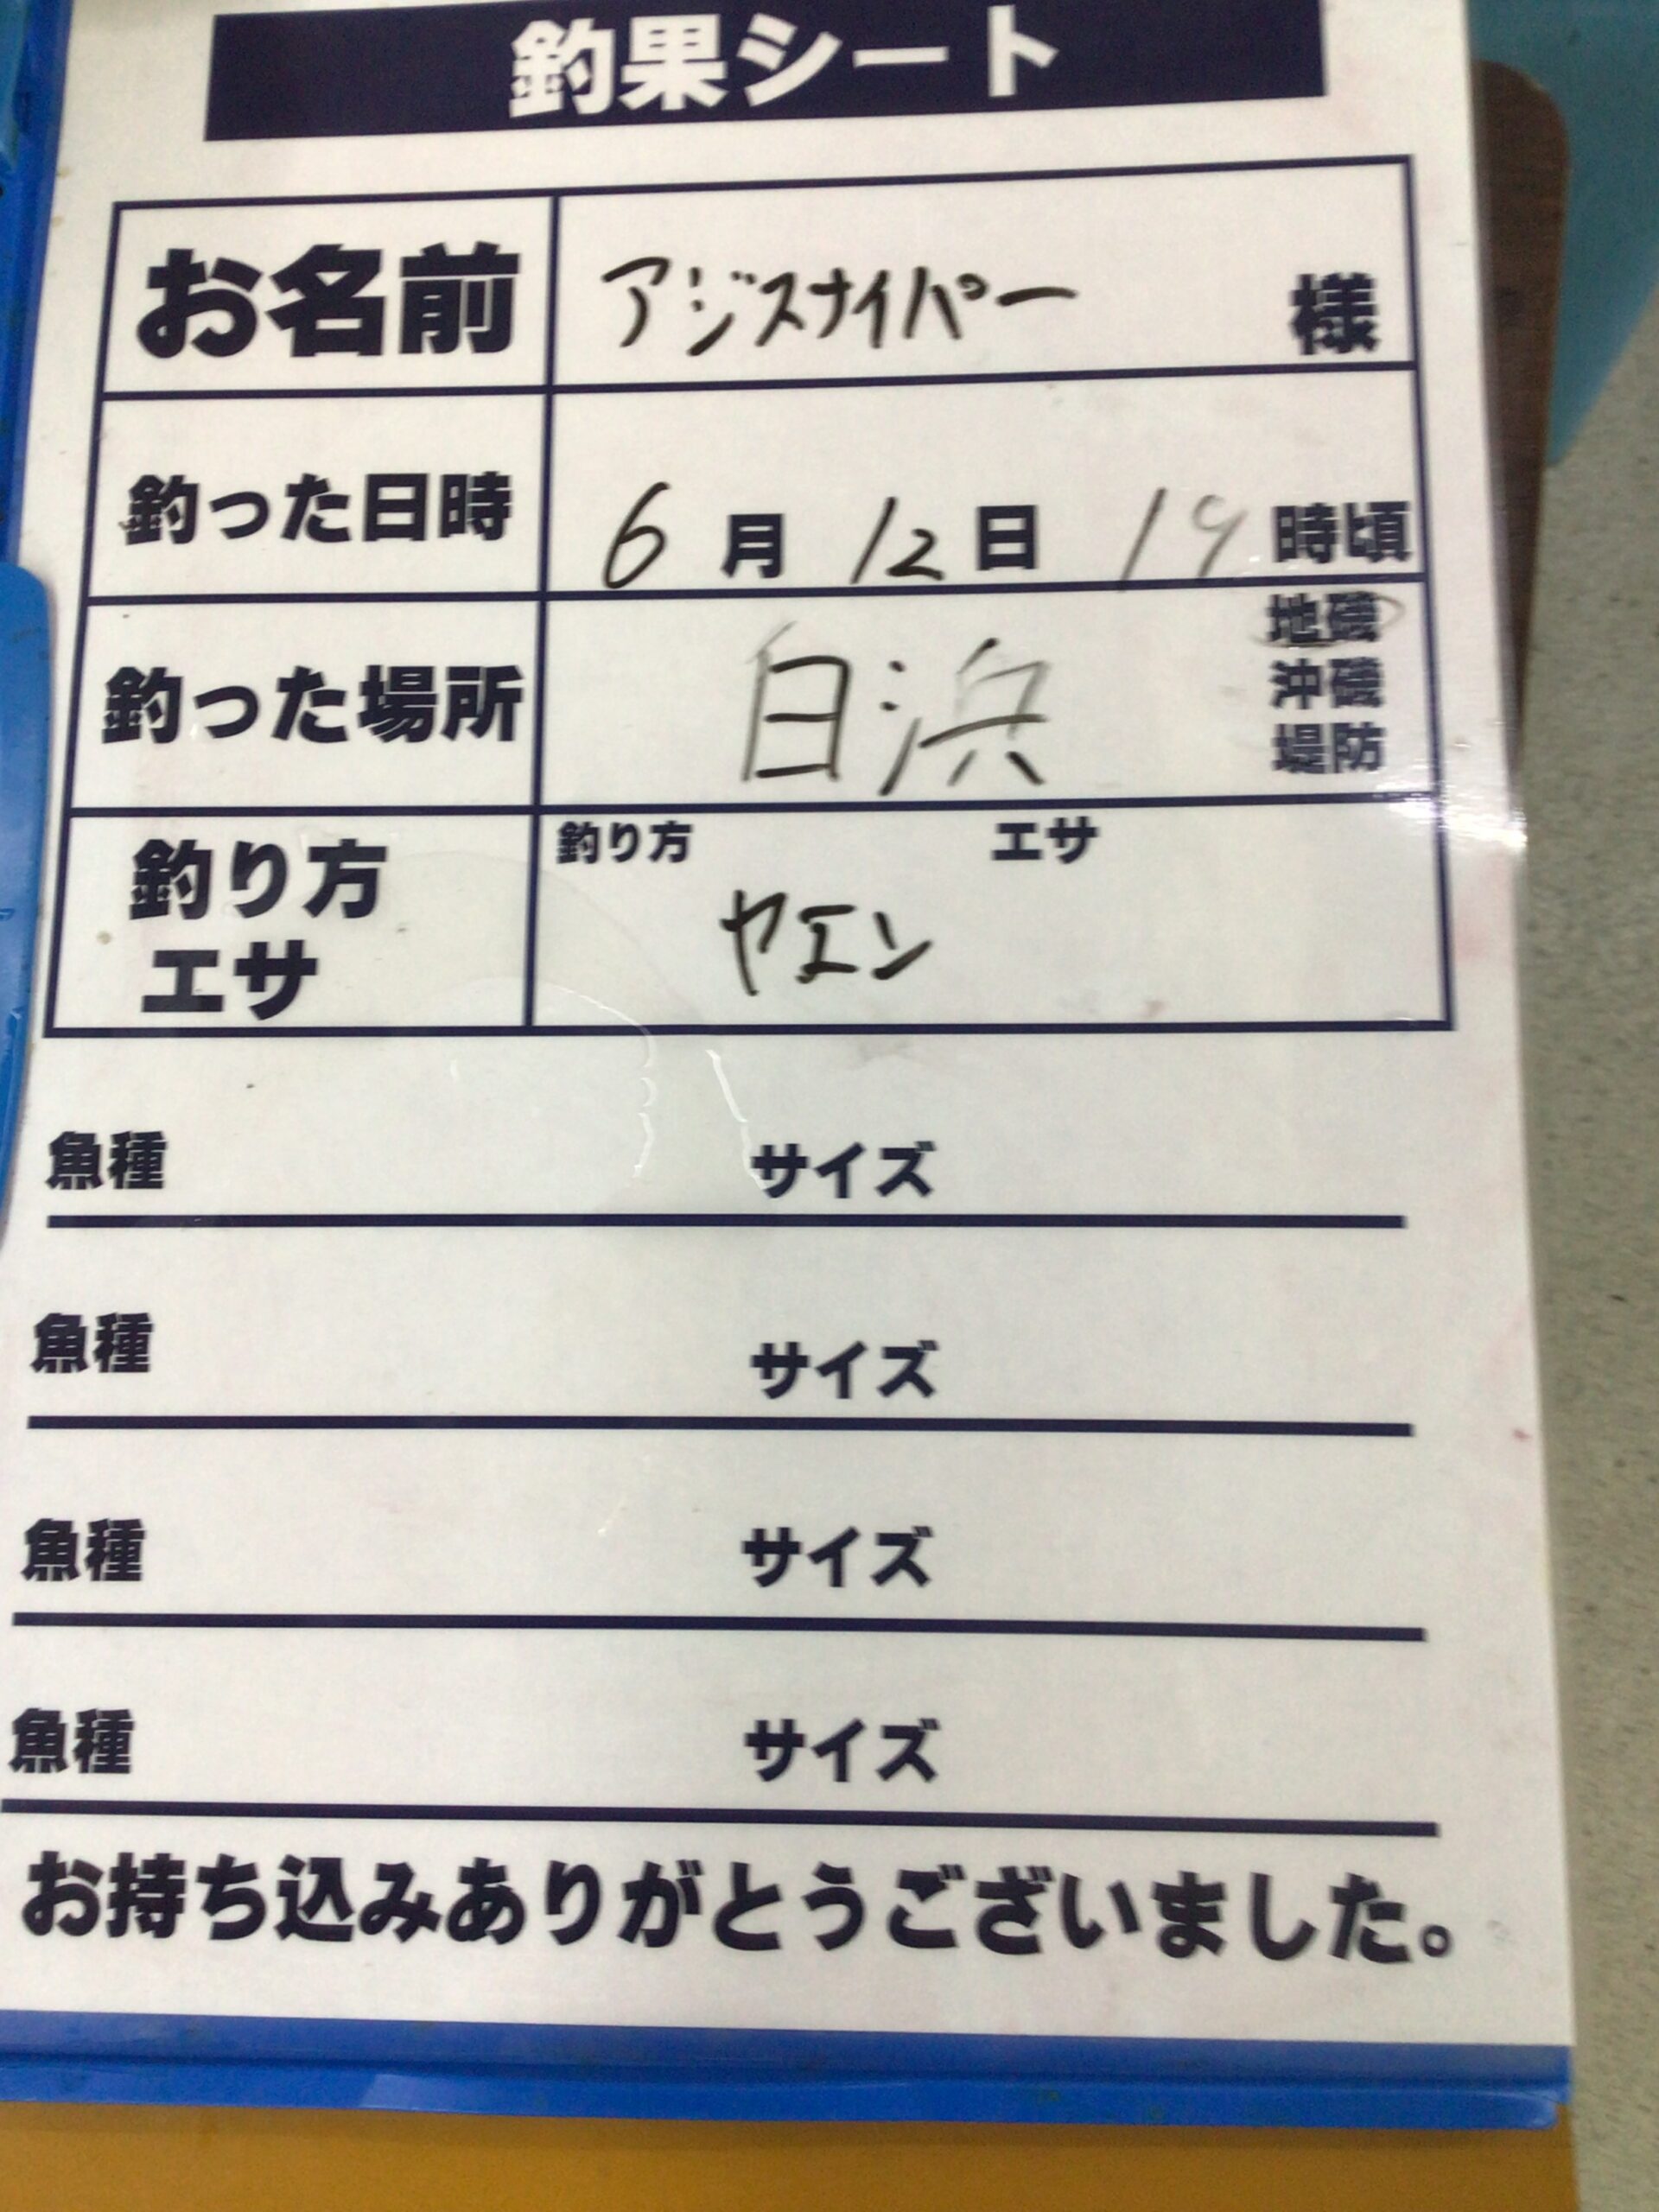 釣果シート
お名前 アジスナイパー 様
釣った日時 6月12日 19時頃
釣った場所 白浜 地磯
沖磯
堤防
釣り方 エサ
釣り方
エサ
ヤエン
魚種 サイズ
魚種 サイズ
魚種 サイズ
魚種 サイズ
お持ち込みありがとうございました。